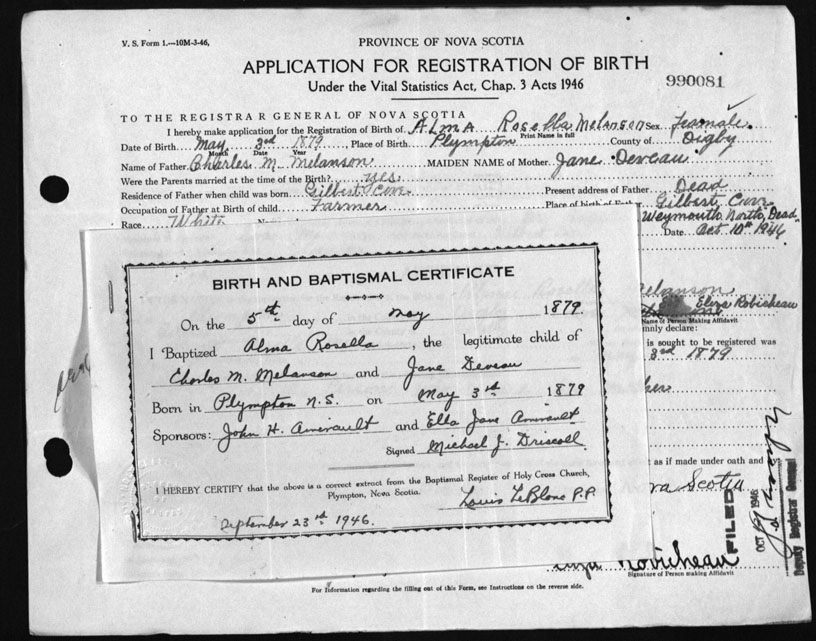 V. S. Form 1.—10M-3-46.
PROVINCE OF NOVA SCOTIA
APPLICATION FOR REGISTRATION OF BIRTH
Under the Vital Statistics Act, Chap. 3 Acts 1946
990081
TO THE REGISTRAR GENERAL OF NOVA SCOTIA
I hereby make application for the Registration of Birth of Alma Rosella Melanson Sex Feamale
Print Name in full
Date of Birth May 3rd 1879, Place of Birth Plympton County of Digby
Month Date Year
Name of Father Charles M. Melanson MAIDEN NAME of Mother Jane Deveau
Were the Parents married at the time of the Birth? yes
Residence of Father when child was born Gilbert Cove Present address of Father Dead
Occupation of Father at Birth of child Farmer Place of birth of Father Gilbert Cove
Race White Weymouth North, Dead
Date Oct 10th 1946
Melanson
Eliza Robicheau
Name of Person Making Affidavit
mnly declare:
is sought to be registered was
3rd 1879
as if made under oath and
Scotia
FILED
OCT 1946
Deputy Registrar General
Robicheau
Signature of Person making Affidavit
BIRTH AND BAPTISMAL CERTIFICATE
On the 5th day of May 1879
I Baptized Alma Rosella, the legitimate child of
Charles M. Melanson and Jane Deveau
Born in Plympton N.S. on May 3rd 1879
Sponsors: John H. Amirault and Ella Jane Amirault
Signed Michael J. Driscoll
I HEREBY CERTIFY that the above is a correct extract from the Baptismal Register of Holy Cross Church,
Plympton, Nova Scotia.
Louis LeBlanc P.P.
September 23rd 1946.
For Information regarding the filling out of this Form, see Instructions on the reverse side.